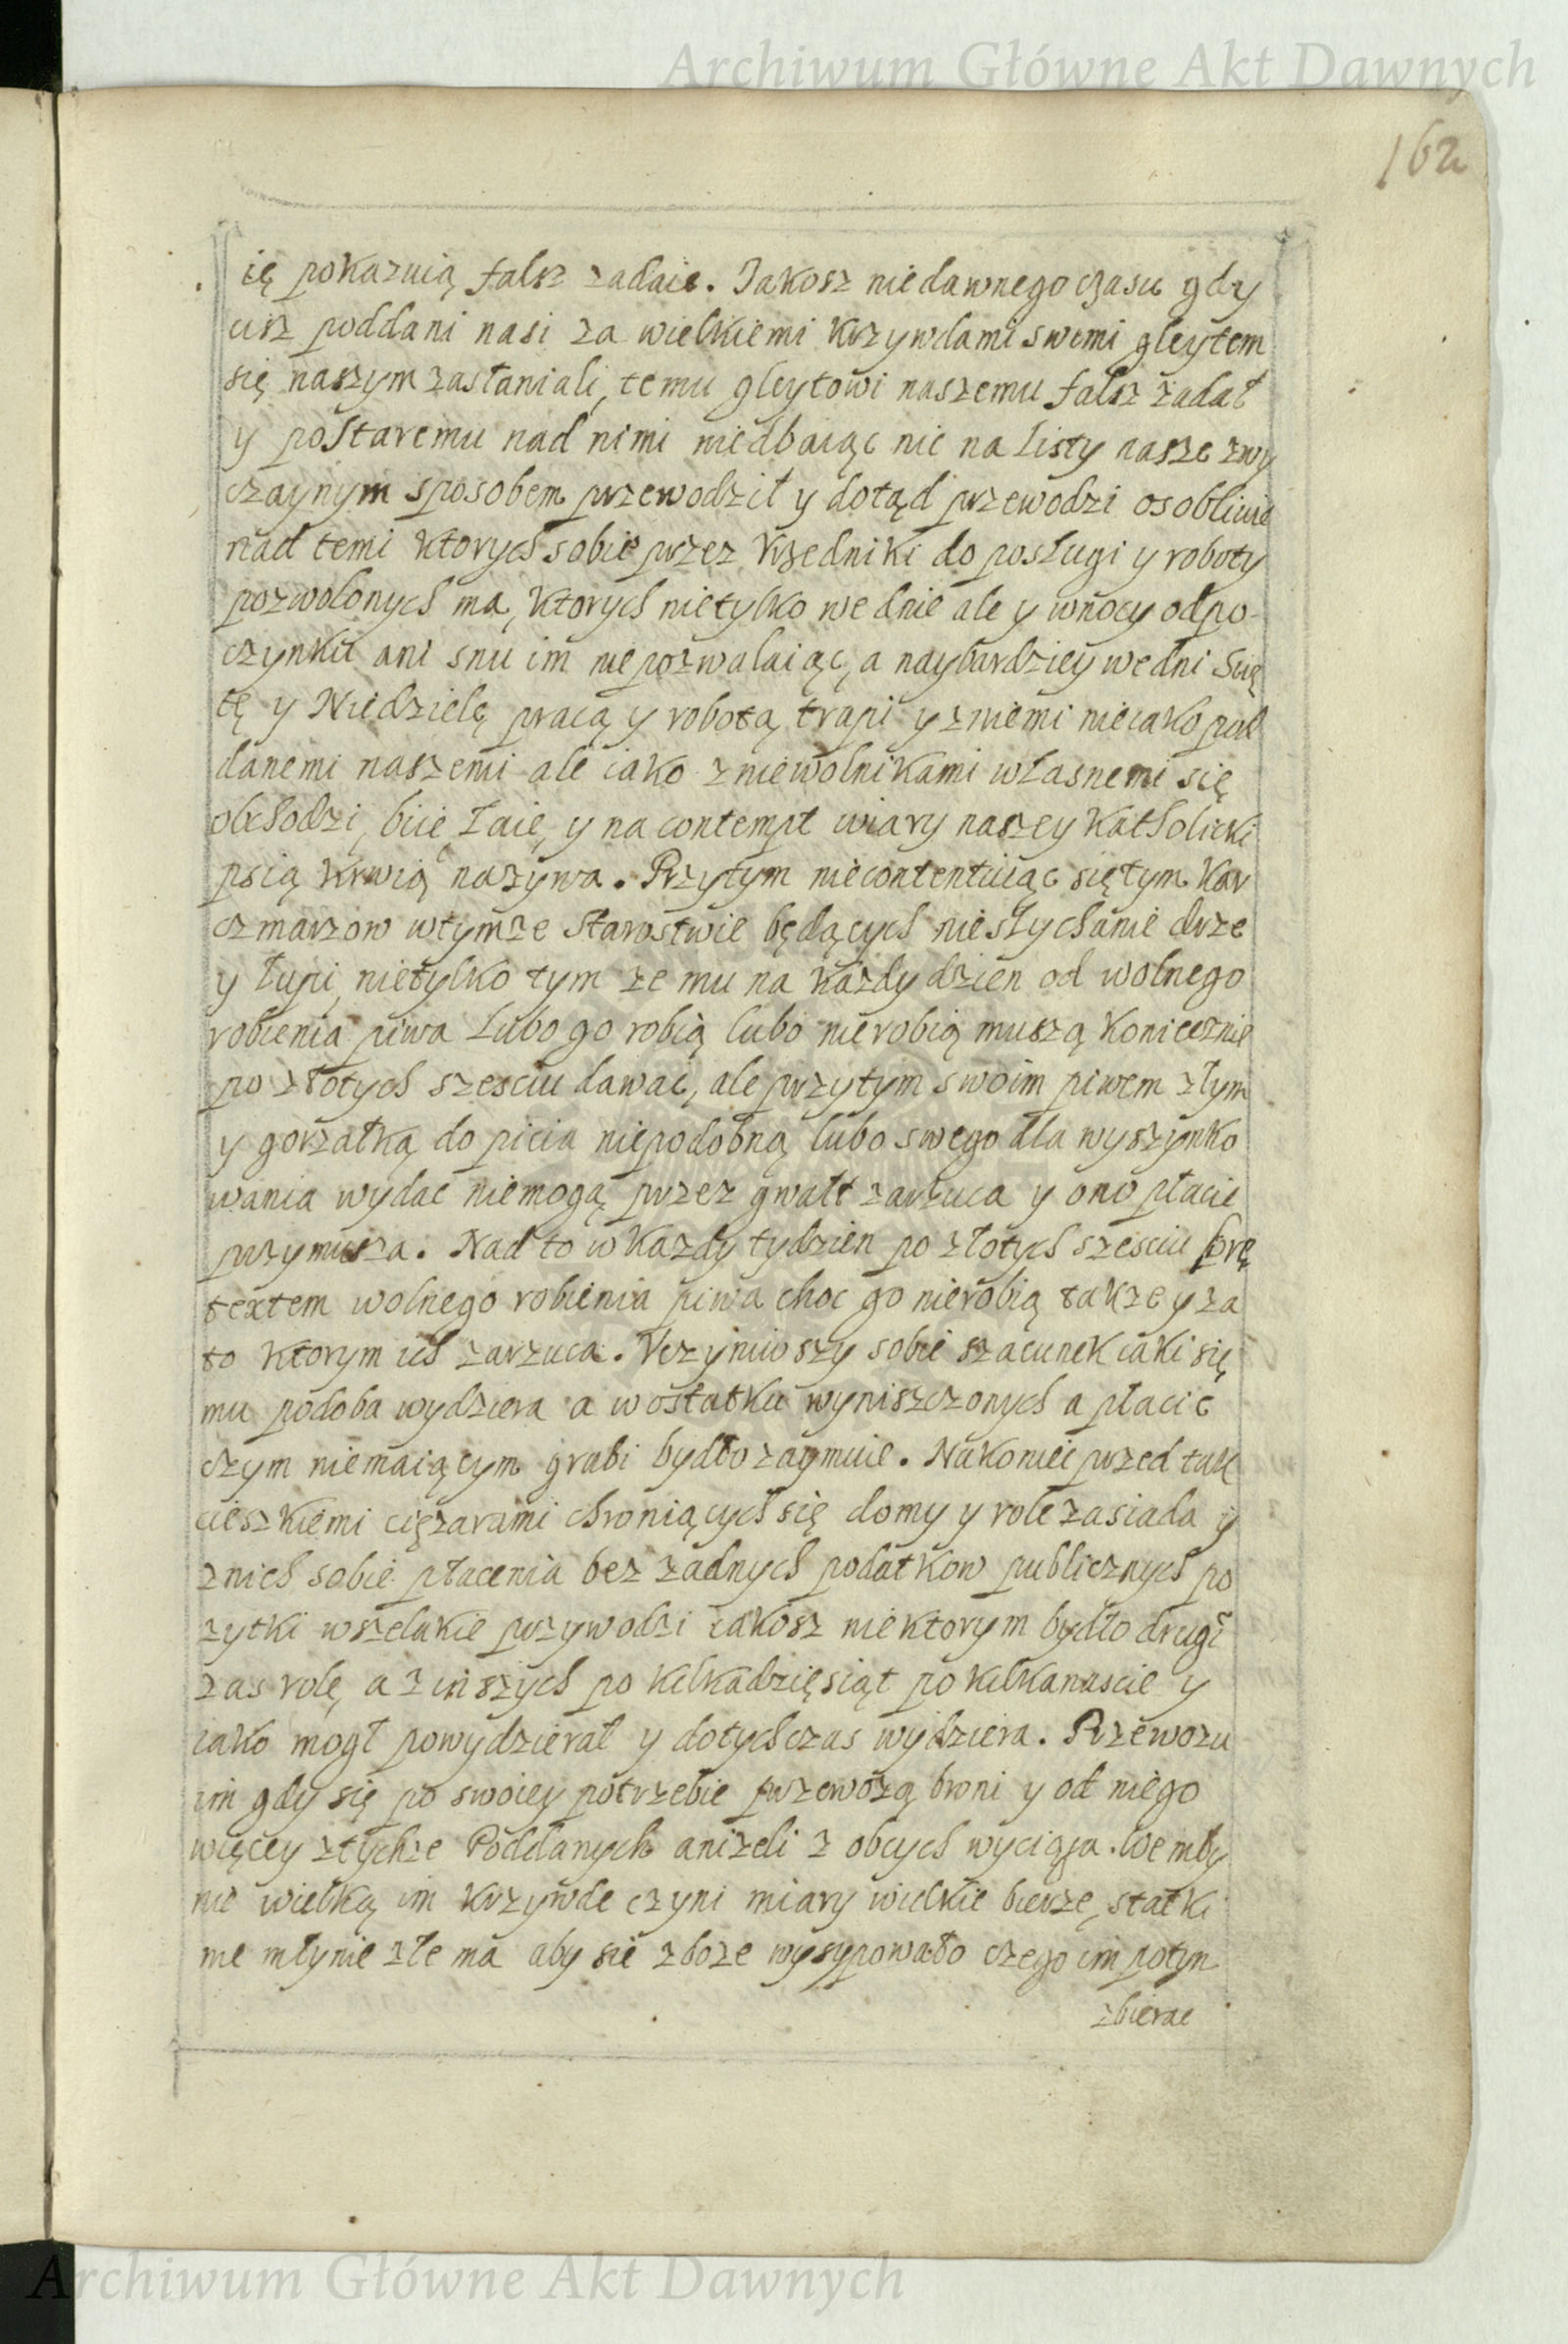 Archiwum Główne Akt Dawnych
162
ię pokazuią falsz zadaie. Jakosz niedawnego czasu gdy
cisz poddani nasi za wielkiemi krzywdami swemi gleytem
się naszym zasłaniali, temu gleytowi naszemu falsz zadał
y postaremu nad nimi niedbaiąc nic na listy nasze zwy
czaynym sposobem przewodził y dotąd przewodzi osobliwie
nad temi ktorych sobie przez Vrzedniki do posługi y roboty
pozwolonych ma, ktorych nietylko we dnie ale y wnocy odpo-
czynku ani snu im niepozwalaiąc, a naybardziey wedni Swię
tę y Niedzielę pracą y robotą trapi y zniemi nieiako pod
danemi naszemi ale iako zniewolnikami własnemi się
obchodzi, biie łaie, y na contempt wiary naszey Katholicki
psią krwią nazywa. Przytym niecontentuiąc siętym kar
czmarzow wtymze Starostwie będących niesłychanie drze
y łupi, nietylko tym ze mu na kazdy dzien od wolnego
robienia piwa lubo go robią lubo nierobią muszą koniecznie
po złotych szesciu dawac, ale przytym swoim piwem złym
y gorzałką do picia niepodobną lubo swego dla wyszynko
wania wydac niemogą przez gwałt zarzuca y ono płacic
przymusza. Nad to w kazdy tydzien po złotych szesciu prę
textem wolnego robienia piwa choc go nierobią takze y za
to ktorym ich zarzuca. Vczyniwszy sobie szacunek iaki się
mu podoba wydziera a wostatku wyniszczonych a płacic
czym niemaiącym grabi bydło zaymuie. Nakoniec przed tak
cieszkiemi cięzarami chroniących się domy y role zasiada y
znich sobie płacenia bez zadnych podatkow publicznych po
zytki wszelakie przywodzi iakosz niektorym bydło drugi
zas rolę, a zinszych po kilkadzięsiąt po kilkanascie y
iako mogł powydzierał y dotychczas wydziera. Przewozu
im gdy się po swoiey potrzebie przewozą broni y od niego
więcey ztychze Poddanych anizeli z obcych wyciąga. We mły
nie wielką im krzywde czyni miary wielkie bierze, statki
we młynie złe ma aby sie zboze wysypowało czego im potym
zbierac
Archiwum Główne Akt Dawnych